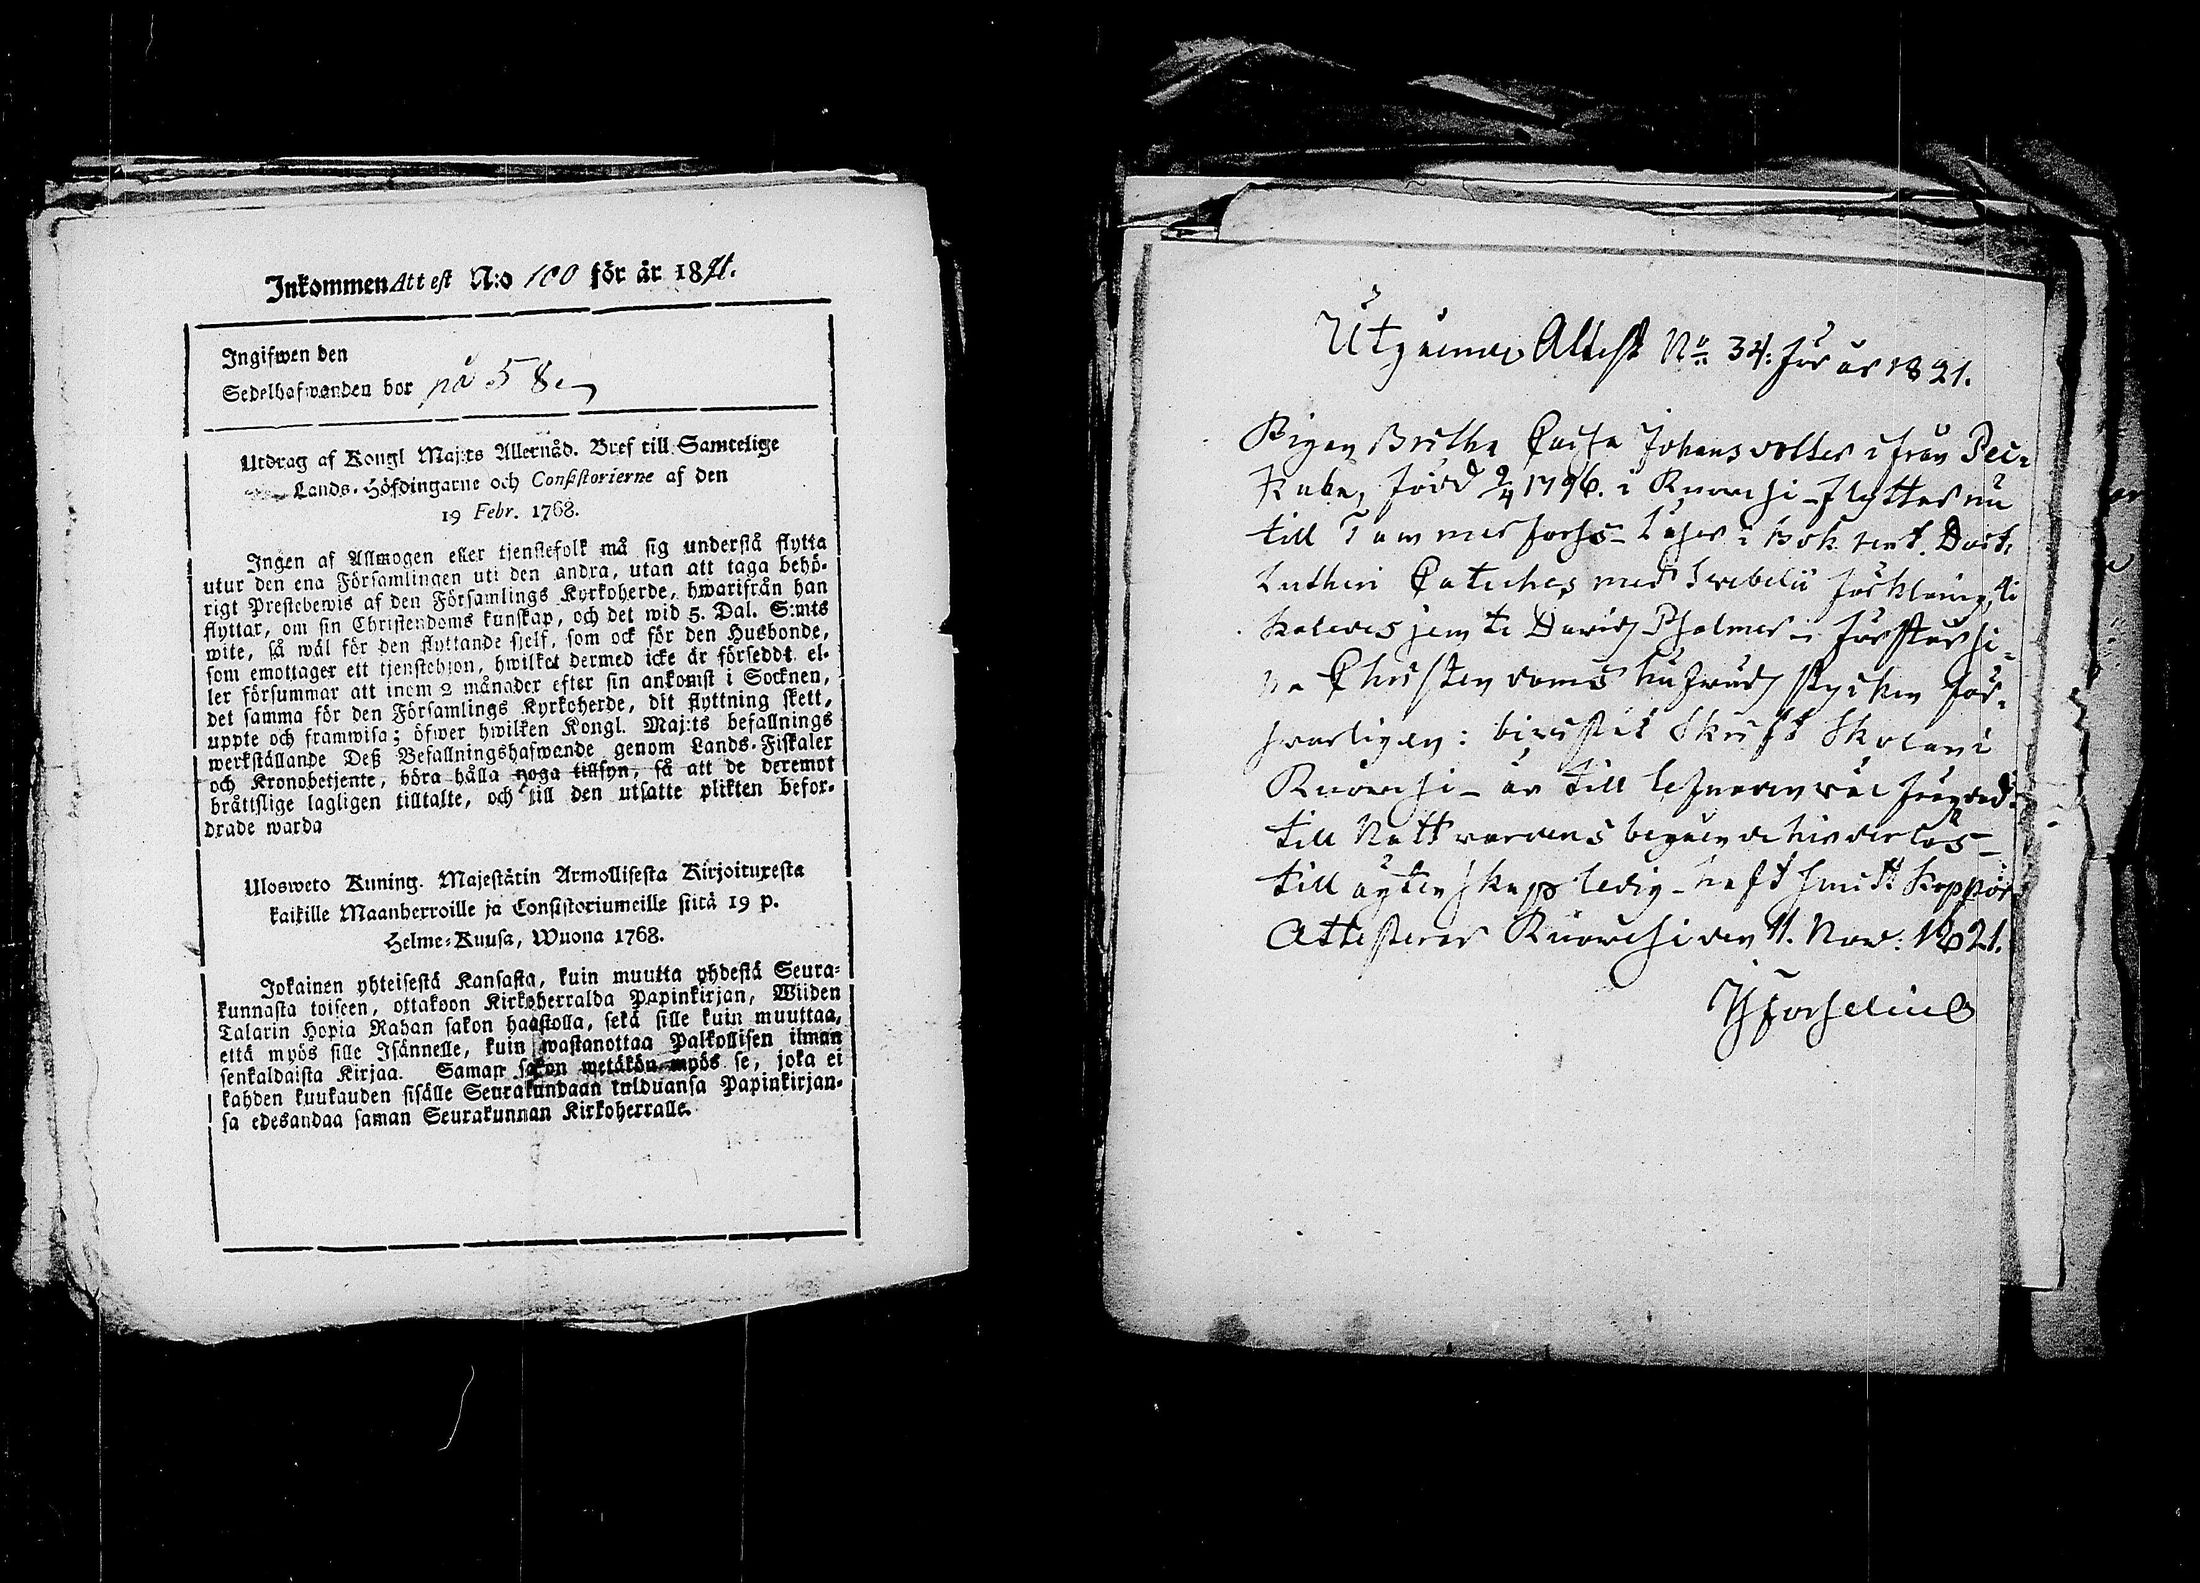 Inkommen Attest N:o 100 för år 1821.
Ingifwen den
Sedelhafwanden bor på 58.
Utdrag af Kongl Maj:ts Allernåd. Bref till Samtelige
Lands-Höfdingarne och Consistorierne af den
19 Febr. 1768.
Ingen af Allmogen eller tjenstefolk må sig understå flytta
utur den ena Församlingen uti den andra, utan att taga behö-
rigt Prestebewis af den Församlings Kyrkoherde, hwarifrån han
flyttar, om sin Christendoms kunskap, och det wid 5. Dal. S:mts
wite, så wäl för den flyttande sjelf, som ock för den Husbonde,
som emottager ett tjenstehjon, hwilket dermed icke är försedt, el-
ler försummar att inom 2 månader efter sin ankomst i Socknen,
det samma för den Församlings Kyrkoherde, dit flyttning skett,
uppte och framwisa; öfwer hwilken Kongl. Maj:ts befallnings
werkställande Deß Befallningshafwande genom Lands-Fiskaler
och Kronobetjente, böra hålla noga tillsyn, så att de deremot
bråttslige lagligen tilltalte, och till den utsatte plikten befor-
drade warda
Ulosweto Kuning. Majestätin Armollisesta Kirjoituxesta
kaikille Maanherroille ja Consistoriumeille siitä 19 p.
Helme-Kuusa, Wuona 1768.
Jokainen yhteisestä Kansasta, kuin muutta yhdestä Seura-
kunnasta toiseen, ottakoon Kirkoherralda Papinkirjan, Wiiden
Talarin Hopia Rahan sakon haastolla, sekä sille kuin muuttaa,
että myös sille Isännelle, kuin wastanottaa Palkollisen ilman
senkaldaista Kirjaa. Saman sakon wetäkön myös se, joka ei
kahden kuukauden sisälle Seurakundaan tulduansa Papinkirjan-
sa edesandaa saman Seurakunnan Kirkoherralle.
Utgående Attest No 34. för år 1821.
Pigan Britha Cajsa Johansdotter ifrån
född 9/4 1796. i Ruovesi - flyttar nu
till Tammerforss - Läser i bok rent. Doct.
Lutheri Cateches med Svebelii förklaring,
jemte Davids Psalmer - förstår si-
na Christendoms hufvud stycken för-
svarligen: bevistat Skrift Skolan i
Ruovesi - är till lefnaden väl frägdad
till Nattvardens begående hinderlös -
till ägtenskap ledig - haft smitt koppor
Attesteras Ruovesi den 11. Nov: 1821.
Forselius